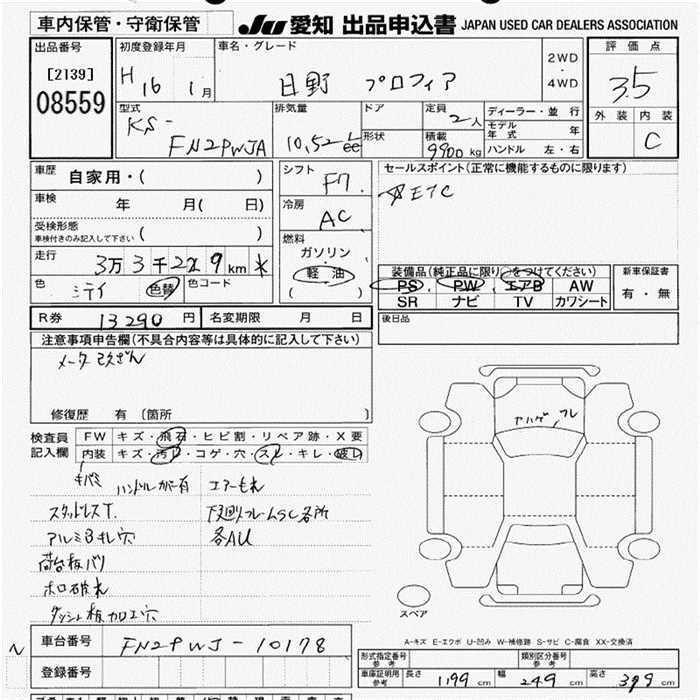 車内保管・守衛保管
JU 愛知 出品申込書 JAPAN USED CAR DEALERS ASSOCIATION
出品番号
[2139]
08559
初度登録年月
H 16 1月
車名・グレード
日野 プロフィア
2WD
・
4WD
評価点
3.5
外装 内装
C
型式
KS-
FN2PWJA
排気量
10,52
ℓ
cc
ドア
形状
定員
2人
積載
9900 kg
ディーラー・並行
モデル年式 年
ハンドル 左・右
車歴 自家用・( )
車検 年 月( 日)
受検形態
車検付きのみ記入して下さい ( )
走行
3万3千229km *
色 色替 色コード
シフト
F7
冷房
AC
燃料
ガソリン
軽油
( )
セールスポイント(正常に機能するものに限ります)
ETC
装備品(純正品に限り○をつけてください)
PS PW エアB AW
SR ナビ TV カワシート
新車保証書
有・無
後日品
R券 13290円 名変期限 月 日
注意事項申告欄(不具合内容等は具体的に記入して下さい)
メーター改ざん
修復歴 有 〔箇所 〕
検査員
記入欄
FW キズ・飛石・ヒビ割・リペア跡・X要
内装 キズ・汚レ・コゲ・穴・スレ・キレ・破レ
キバミ
エアーもれ
スタッドレスT.
下廻りフレームSC各所
各AU
荷台板バリ
ホロ破れ
スペア
A-キズ E-エクボ U-凹み W-補修跡 S-サビ C-腐食 XX-交換済
車台番号 FN2PWJ-10178
登録番号
形式指定番号
参考
類別区分番号
参考
車庫証明用
参考
長さ 1199 cm 幅 249 cm 高さ 379 cm